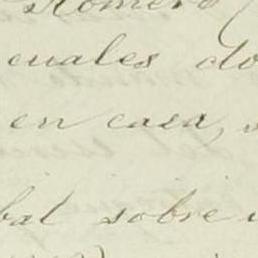 Romero
cuales do
en casa,
bal sobre